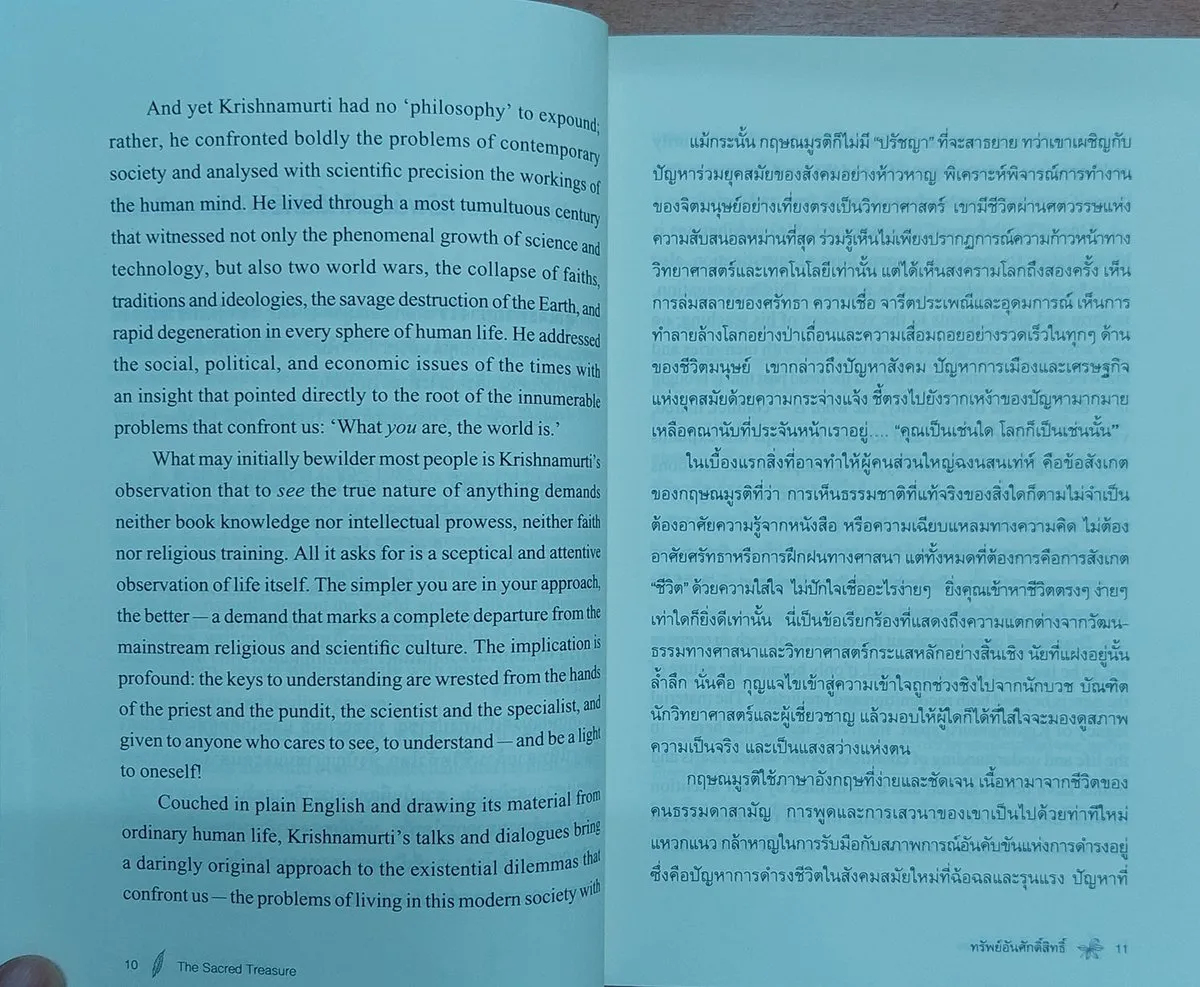 And yet Krishnamurti had no ‘philosophy’ to expound;
rather, he confronted boldly the problems of contemporary
society and analysed with scientific precision the workings of
the human mind. He lived through a most tumultuous century
that witnessed not only the phenomenal growth of science and
technology, but also two world wars, the collapse of faiths,
traditions and ideologies, the savage destruction of the Earth, and
rapid degeneration in every sphere of human life. He addressed
the social, political, and economic issues of the times with
an insight that pointed directly to the root of the innumerable
problems that confront us: ‘What you are, the world is.’
What may initially bewilder most people is Krishnamurti’s
observation that to see the true nature of anything demands
neither book knowledge nor intellectual prowess, neither faith
nor religious training. All it asks for is a sceptical and attentive
observation of life itself. The simpler you are in your approach,
the better — a demand that marks a complete departure from the
mainstream religious and scientific culture. The implication is
profound: the keys to understanding are wrested from the hands
of the priest and the pundit, the scientist and the specialist, and
given to anyone who cares to see, to understand — and be a light
to oneself!
Couched in plain English and drawing its material from
ordinary human life, Krishnamurti’s talks and dialogues bring
a daringly original approach to the existential dilemmas that
confront us — the problems of living in this modern society with
10 The Sacred Treasure
แม้กระนั้น กฤษณมูรติก็ไม่มี “ปรัชญา” ที่จะสาธยาย ทว่าเขาเผชิญกับ
ปัญหาร่วมยุคสมัยของสังคมอย่างห้าวหาญ พิเคราะห์พิจารณ์การทำงาน
ของจิตมนุษย์อย่างเที่ยงตรงเป็นวิทยาศาสตร์ เขามีชีวิตผ่านศตวรรษแห่ง
ความสับสนอลหม่านที่สุด ร่วมรู้เห็นไม่เพียงปรากฏการณ์ความก้าวหน้าทาง
วิทยาศาสตร์และเทคโนโลยีเท่านั้น แต่ได้เห็นสงครามโลกถึงสองครั้ง เห็น
การล่มสลายของศรัทธา ความเชื่อ จารีตประเพณีและอุดมการณ์ เห็นการ
ทำลายล้างโลกอย่างป่าเถื่อนและความเสื่อมถอยอย่างรวดเร็วในทุกๆ ด้าน
ของชีวิตมนุษย์ เขากล่าวถึงปัญหาสังคม ปัญหาการเมืองและเศรษฐกิจ
แห่งยุคสมัยด้วยความกระจ่างแจ้ง ชี้ตรงไปยังรากเหง้าของปัญหามากมาย
เหลือคณานับที่ประจันหน้าเราอยู่.... “คุณเป็นเช่นใด โลกก็เป็นเช่นนั้น”
ในเบื้องแรกสิ่งที่อาจทำให้ผู้คนส่วนใหญ่ฉงนสนเท่ห์ คือข้อสังเกต
ของกฤษณมูรติที่ว่า การเห็นธรรมชาติที่แท้จริงของสิ่งใดก็ตามไม่จำเป็น
ต้องอาศัยความรู้จากหนังสือ หรือความเฉียบแหลมทางความคิด ไม่ต้อง
อาศัยศรัทธาหรือการฝึกฝนทางศาสนา แต่ทั้งหมดที่ต้องการคือการสังเกต
“ชีวิต” ด้วยความใส่ใจ ไม่ปักใจเชื่ออะไรง่ายๆ ยิ่งคุณเข้าหาชีวิตตรงๆ ง่ายๆ
เท่าใดก็ยิ่งดีเท่านั้น นี่เป็นข้อเรียกร้องที่แสดงถึงความแตกต่างจากวัฒน-
ธรรมทางศาสนาและวิทยาศาสตร์กระแสหลักอย่างสิ้นเชิง นัยที่แฝงอยู่นั้น
ล้ำลึก นั่นคือ กุญแจไขเข้าสู่ความเข้าใจถูกช่วงชิงไปจากนักบวช บัณฑิต
นักวิทยาศาสตร์และผู้เชี่ยวชาญ แล้วมอบให้ผู้ใดก็ได้ที่ใส่ใจจะมองดูสภาพ
ความเป็นจริง และเป็นแสงสว่างแห่งตน
กฤษณมูรติใช้ภาษาอังกฤษที่ง่ายและชัดเจน เนื้อหามาจากชีวิตของ
คนธรรมดาสามัญ การพูดและการเสวนาของเขาเป็นไปด้วยท่าทีใหม่
แหวกแนว กล้าหาญในการรับมือกับสภาพการณ์อันคับขันแห่งการดำรงอยู่
ซึ่งคือปัญหาการดำรงชีวิตในสังคมสมัยใหม่ที่ฉ้อฉลและรุนแรง ปัญหาที่
ทรัพย์อันศักดิ์สิทธิ์ 11